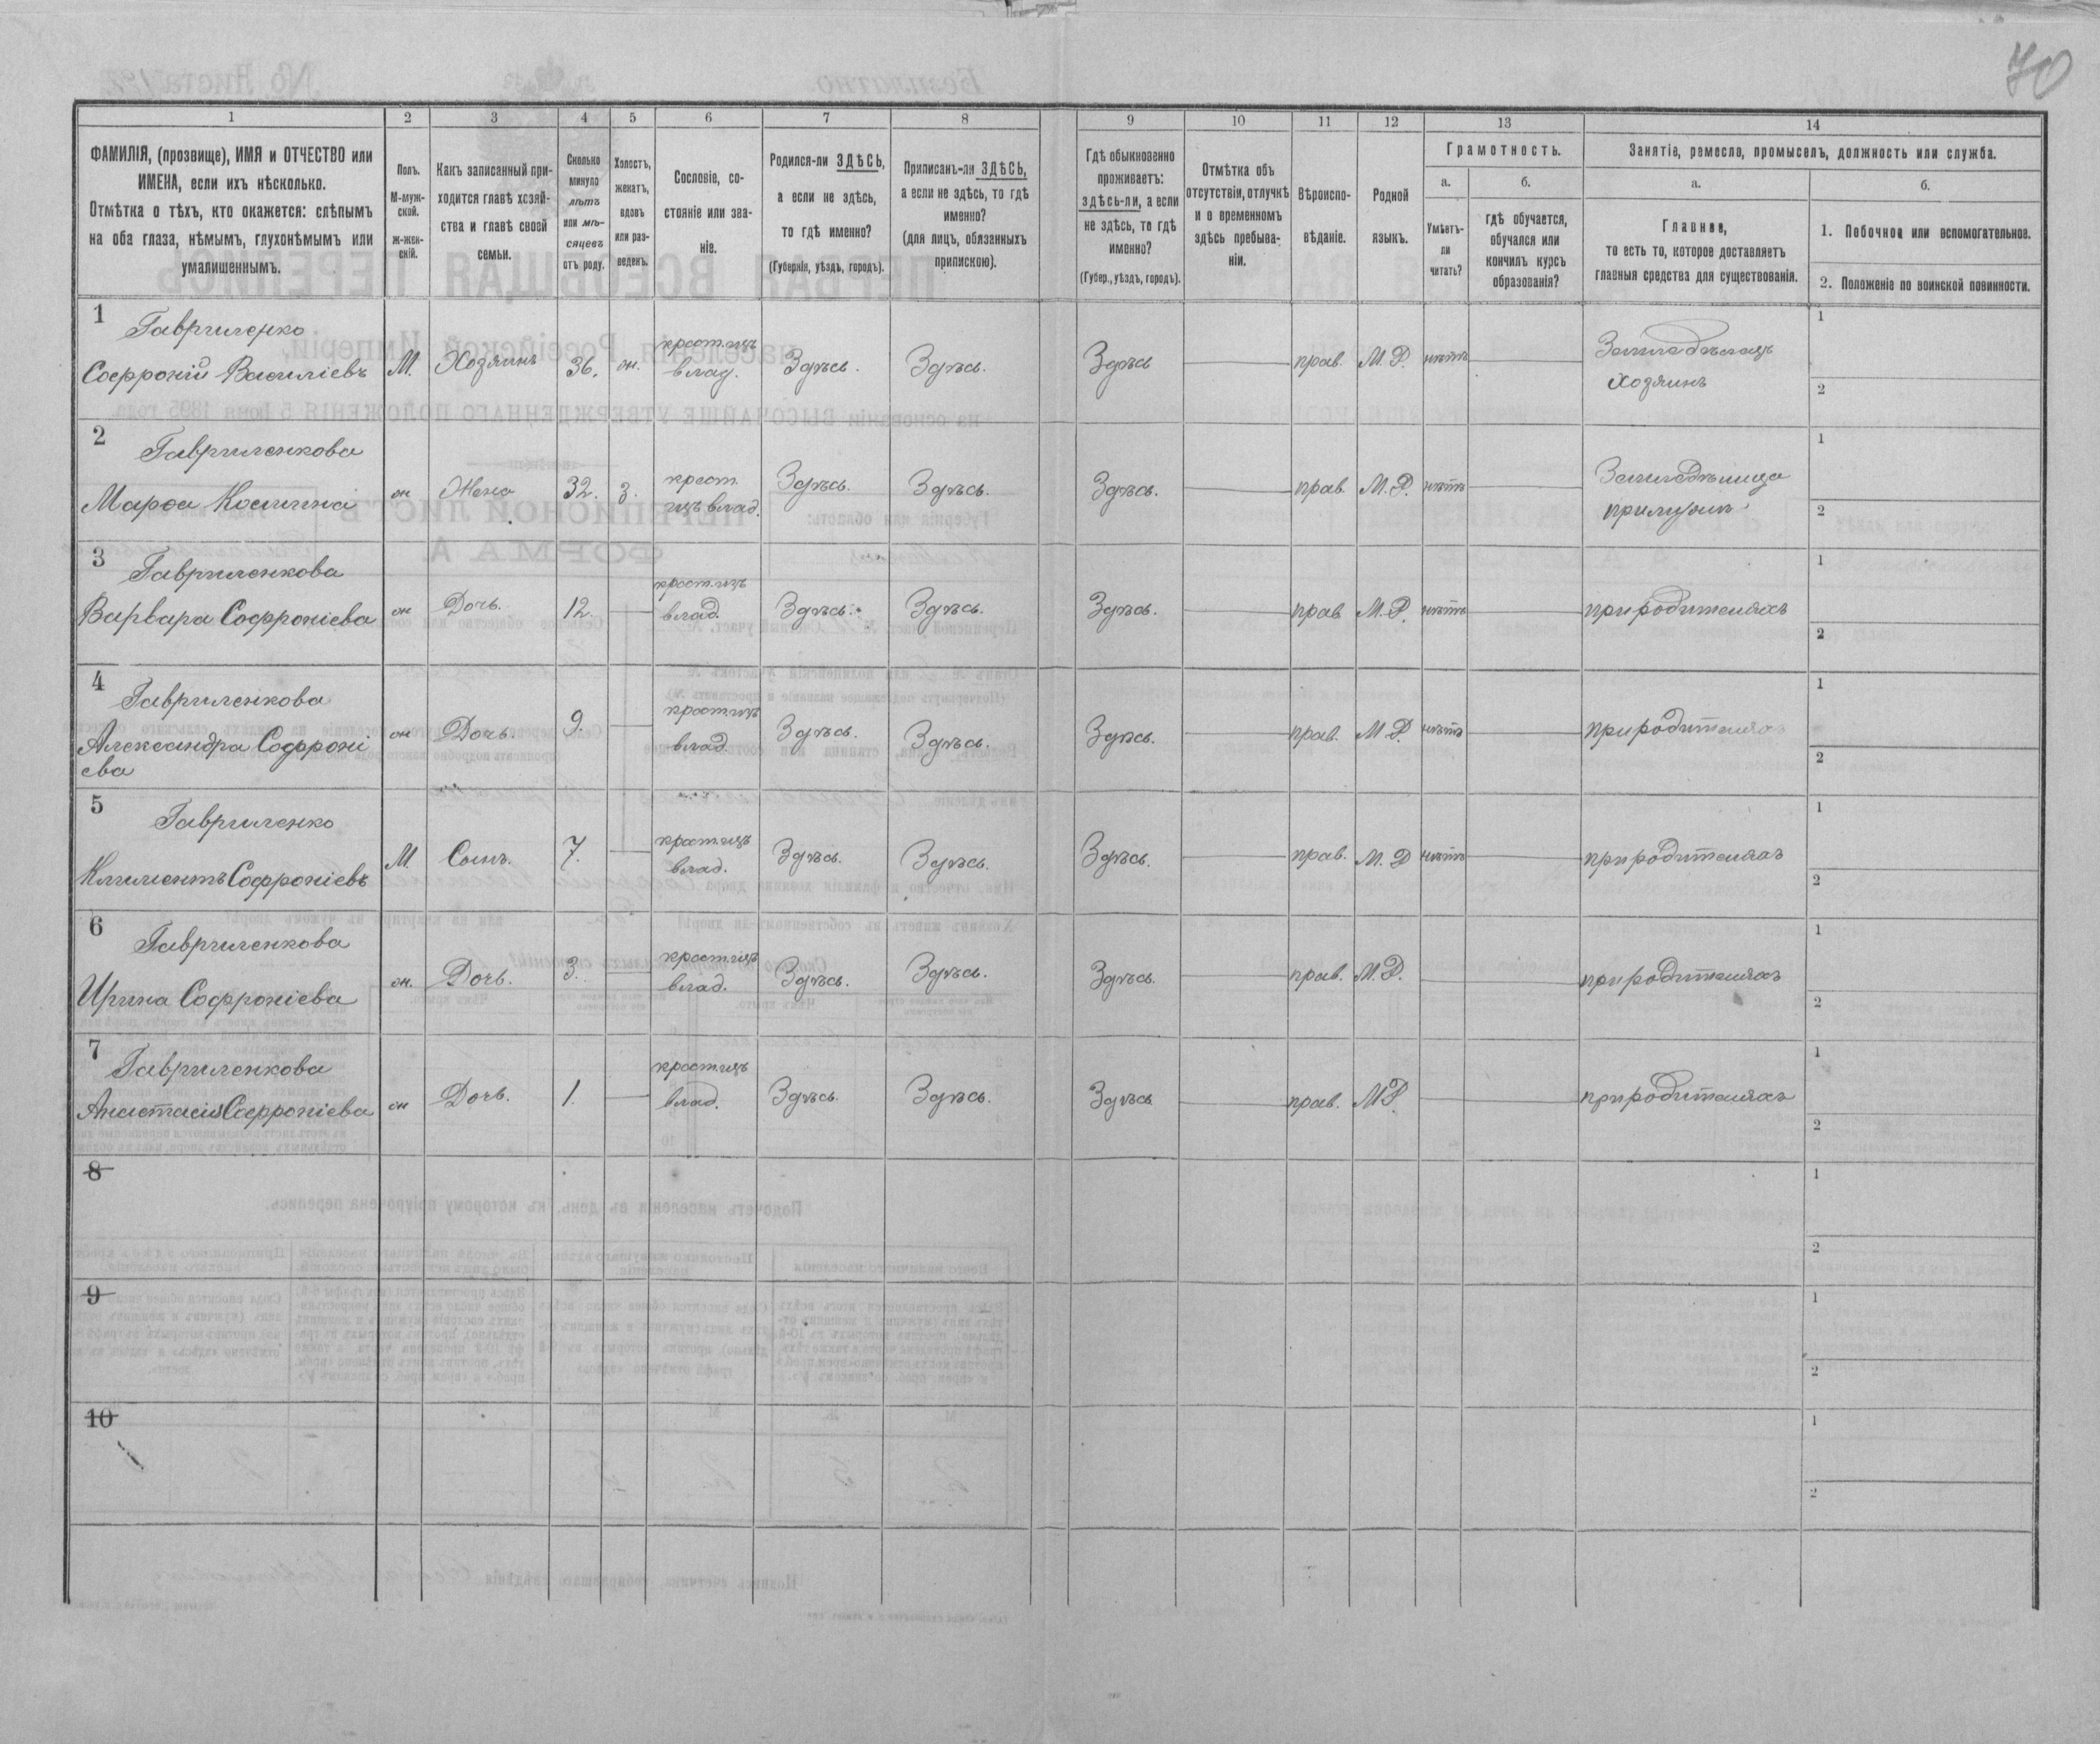 70
1 2 3 4 5 6 7 8 9 10 11 12 13 14
ФАМИЛІЯ, (прозвище), ИМЯ и ОТЧЕСТВО или
ИМЕНА, если ихъ нѣсколько.
Отмѣтка о тѣхъ, кто окажется: слѣпымъ
на оба глаза, нѣмымъ, глухонѣмымъ или
умалишеннымъ.
Полъ.
М-муж-
ской.
ж-жен-
скій.
Какъ записанный при-
ходится главѣ хозяй-
ства и главѣ своей
семьи.
Сколько
минуло
лѣтъ
или мѣ-
сяцевъ
отъ роду.
Холостъ,
женатъ,
вдовъ
или раз-
веденъ.
Сословіе, со-
стояніе или зва-
ніе.
Родился-ли ЗДѢСЬ,
а если не здѣсь,
то гдѣ именно?
(Губернія, уѣздъ, городъ).
Приписанъ-ли ЗДѢСЬ,
а если не здѣсь, то гдѣ
именно?
(для лицъ, обязанныхъ
припискою).
Гдѣ обыкновенно
проживаетъ:
здѣсь-ли, а если
не здѣсь, то гдѣ
именно?
(Губер., уѣздъ, городъ).
Отмѣтка объ
отсутствіи, отлучкѣ
и о временномъ
здѣсь пребыва-
ніи.
Вѣроиспо-
вѣданіе.
Родной
языкъ.
Грамотность.
а.
Умѣетъ-
ли
читать?
б.
гдѣ обучается,
обучался или
кончилъ курсъ
образованія?
Занятіе, ремесло, промыселъ, должность или служба.
а.
Главное,
то есть то, которое доставляетъ
главныя средства для существованія.
б.
1. Побочное или вспомогательное.
2. Положеніе по воинской повинности.
1 Гавриленко
Софроній Василіевъ М. Хозяинъ 36. ж. крест. изъ влад. Здѣсь. Здѣсь. Здѣсь прав. М.Р. нѣтъ Земледѣлецъ
хозяинъ
1
2
2 Гавриленкова
Марфа ж Жена 32. З. крест. изъ влад. Здѣсь. Здѣсь. Здѣсь. прав. М.Р. нѣтъ
1
2
3 Гавриленкова
Варвара Софроніева ж Дочь. 12. крест. изъ влад. Здѣсь. Здѣсь. Здѣсь. прав М.Р. нѣтъ при родителяхъ
1
2
4 Гавриленкова
Александра Софроні
ева ж Дочь. 9. крест. изъ влад. Здѣсь. Здѣсь. Здѣсь. прав. М.Р. нѣтъ при родителяхъ
1
2
5 Гавриленко
Климентъ Софроніевъ М. Сынъ. 7. крест. изъ влад. Здѣсь. Здѣсь. Здѣсь. прав. М.Р нѣтъ при родителяхъ
1
2
6 Гавриленкова
Ирина Софроніева ж. Дочь. 3. крест. изъ влад. Здѣсь. Здѣсь. Здѣсь. прав. М.Р. при родителяхъ
1
2
7 Гавриленкова
Анастасія Софроніева ж Дочь. 1. крест. изъ влад. Здѣсь. Здѣсь. Здѣсь прав. МР. при родителяхъ
1
2
8
1
2
9
1
2
10
1
2